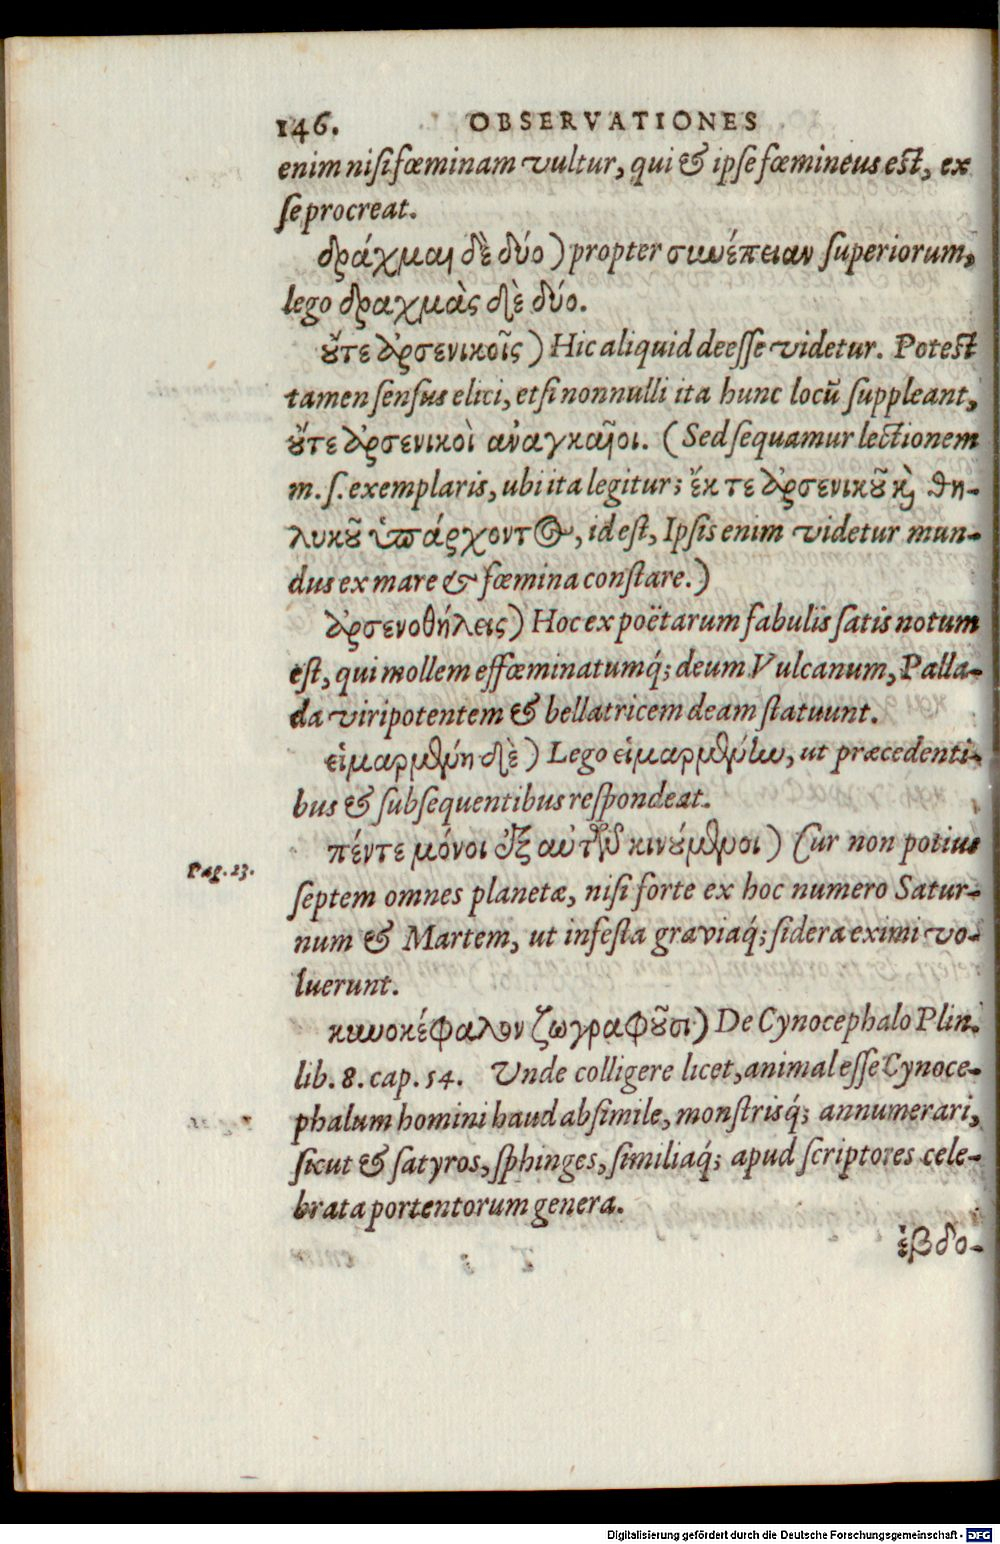 146. OBSERVATIONES
enim nisi fœminam vultur, qui & ipse fœmineus est, ex
se procreat.
δράχμαι δὲ δύο) propter συνέπειαν superiorum,
lego δραχμὰς διὲ δύο.
οὔτε ἀρσενικοῖς) Hic aliquid deesse videtur. Potest
tamen sensus elici, etsi nonnulli ita hunc locū suppleant,
οὔτε ἀρσενικοὶ ἀναγκαῖοι. (Sed sequamur lectionem
m. s. exemplaris, ubi ita legitur; ἔκ τε ἀρσενικοῦ καὶ θη-
λυκοῦ ὑπάρχοντος, id est, Ipsis enim videtur mun-
dus ex mare & fœmina constare.)
ἀρσενοθήλεις) Hoc ex poëtarum fabulis satis notum
est, qui mollem effœminatumq́; deum Vulcanum, Palla-
da viripotentem & bellatricem deam statuunt.
εἱμαρμένη διὲ) Lego εἱμαρμένην, ut præcedenti-
bus & subsequentibus respondeat.
πέντε μόνοι ἐξ αὐτῶν κινούμενοι) Cur non potius
Pag. 23.
septem omnes planetæ, nisi forte ex hoc numero Satur-
num & Martem, ut infesta graviaq́; sidera eximi vo-
luerunt.
κυνοκέφαλον ζωγραφοῦσι) De Cynocephalo Plin.
lib. 8. cap. 54. Unde colligere licet, animal esse Cynoce-
phalum homini haud absimile, monstrisq́; annumerari,
sicut & satyros, sphinges, similiaq́; apud scriptores cele-
brata portentorum genera.
ἑβδο-
Digitalisierung gefördert durch die Deutsche Forschungsgemeinschaft - DFG